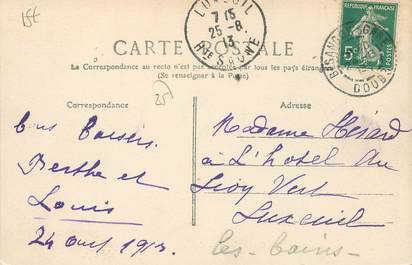 15€
LUXEUIL
7 15
25-8
13
Hte SAONE
REPUBLIQUE FRANCAISE
5c
POSTES
BESANCON
DOUBS
CARTE POSTALE
La Correspondance au recto n'est pas acceptée par tous les pays étrangers
(Se renseigner à la Poste)
Correspondance
25
Adresse
Bons Baisers
Berthe et
Louis
24 Aout 1913.
Madame Hérard
à L'hotel du
Lion Vert
Luxeuil
les-bains-